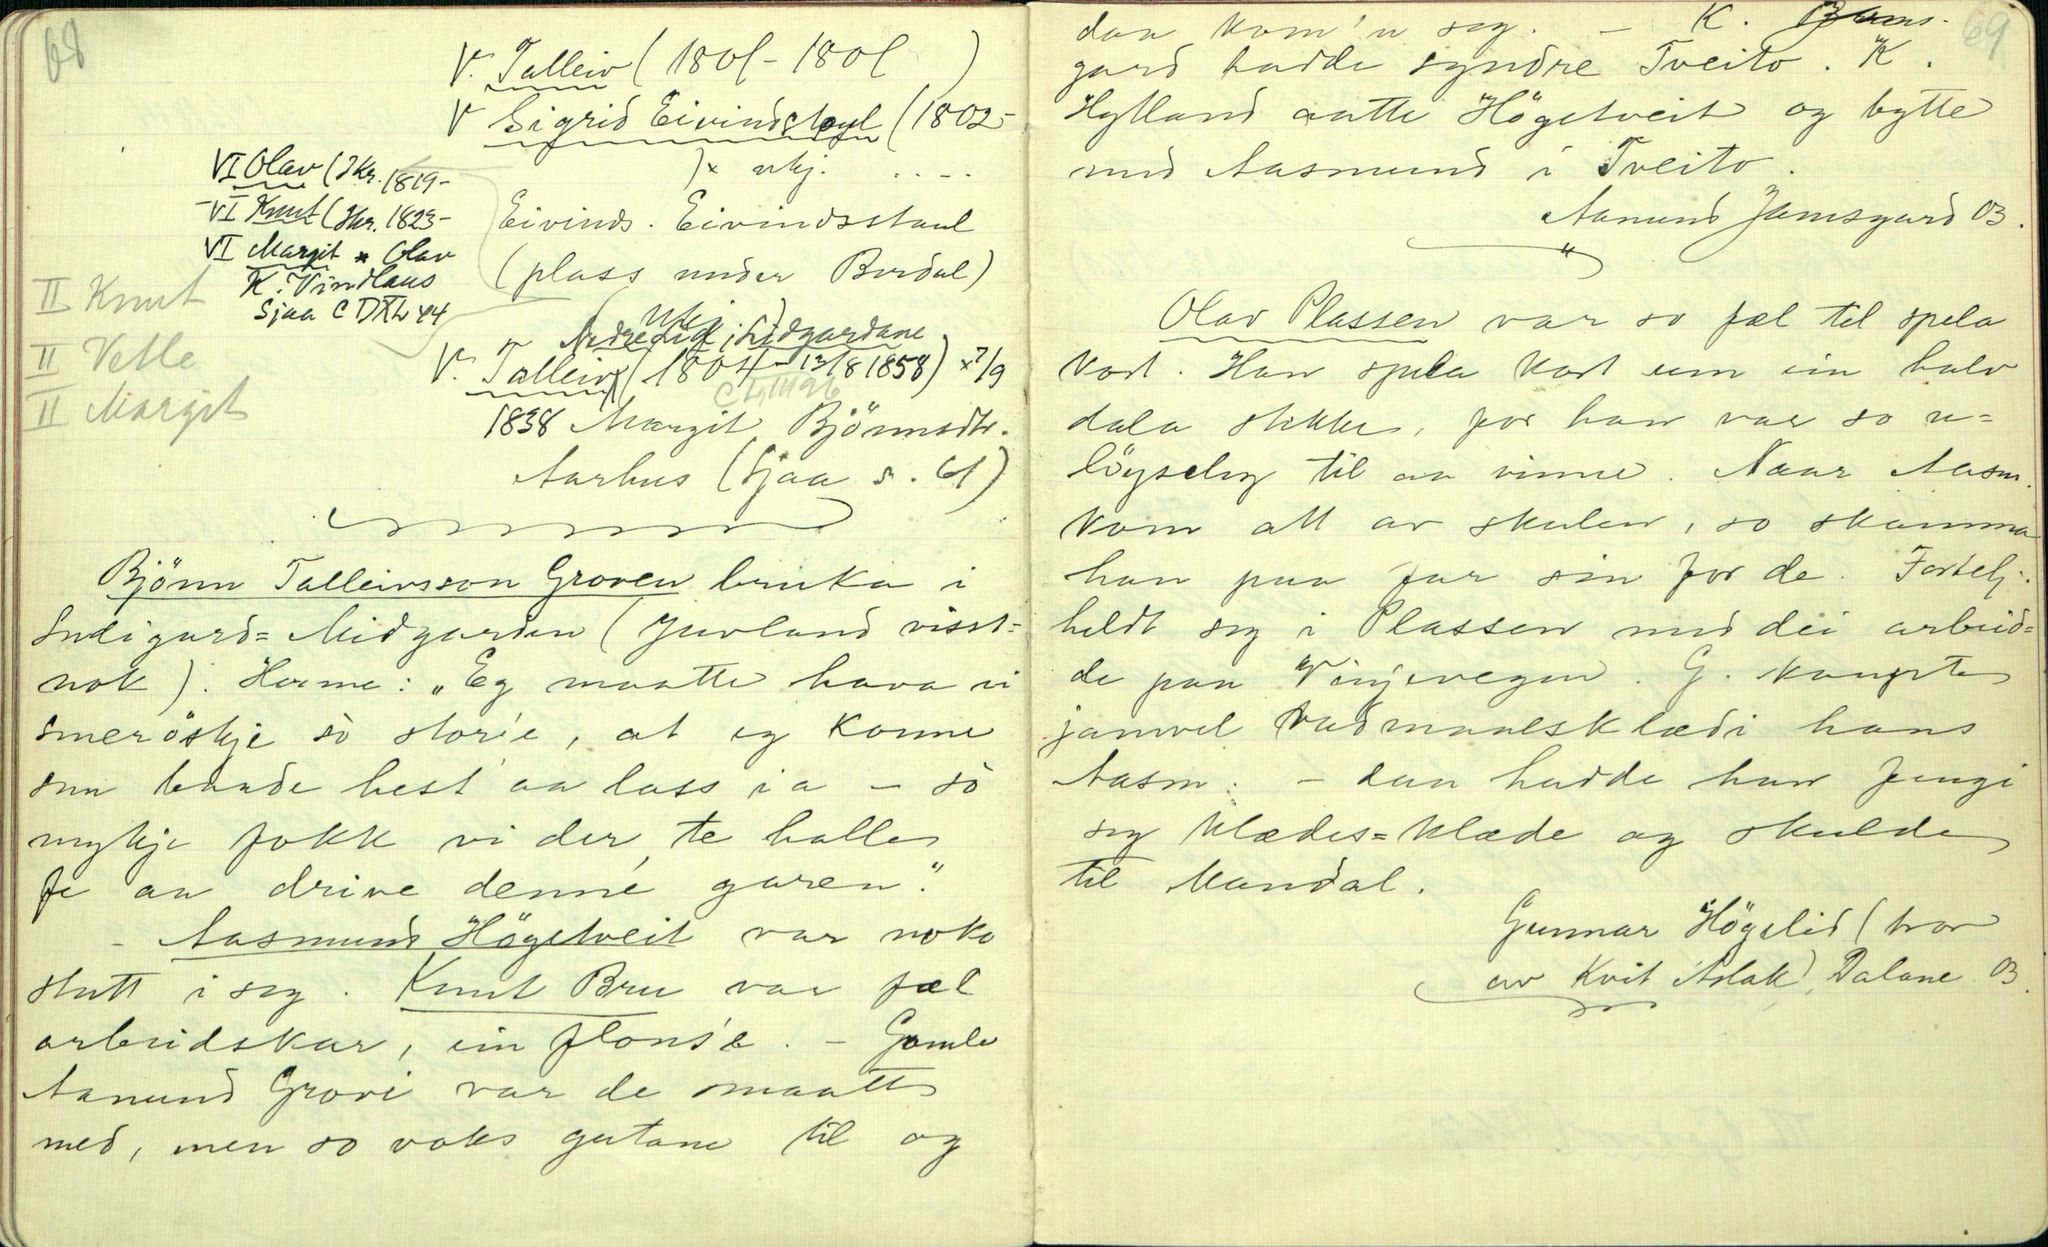 68
V. Talleiv (1801 - 1801 )
V Sigrid Eivindstaul (1802-
)x ukj. ....
Eivinds. Eivindsstaul
(plass under Bordal)
VI Olav (Jkr. 1819-
VI Knut (Jkr. 1823-
VI Margit x Olav
K. Vindlaus
Sjaa C DXL 44
II Knut
II Vetle
II Margit
(ukj)
Nedre Lid i Lidgardane
V. Talleiv (1804 - 13/8 1858) x 7/9
1838 Margit Björnsdtr.
Aarhus (Sjaa s. 61)
Björn Talleivsson Groven bruka i
Sudigard= Midgarden (Juvland visst=
nok). Herme: „Eg maatte hava ei
smerøskje sò stor'e, at eg konne
snu baade hest aa lass i a - sò
mykje fokk vi der te halle
fe aa drive denne garen."
- Aasmund Högetveit var noko
stutt i seg. Knut Bru var fæl
arbeidskar, ein flons'e. - Gamle
Aanund Grovi var de smaatt
med, men so voks gutane til og
69
daa kom'n seg. - K. Jams-
gard hadde syndre Tveito. K.
Hylland aatte Högetveit og bytte
med Aasmund i Tveito.
Aanund Jamsgard 03.
Olav Plassen var so fæl til spela
kort. Han spela kort um ein halv
dala stikke, for han var so u=
löyseleg til aa vinne. Naar Aasm.
kom att av skulen, so skamma
han paa far sin for de. Fortelj.
heldt seg i Plassen med dei arbeid=
de paa Vinjevegen. G. kaupte
jamvel vadmaalsklædi hans
Aasm. - daa hadde han fengi
seg klædes=klæde og skulde
til Mandal.
Gunnar Högelid (bror
av Kvit Aslak) Dalane 03.